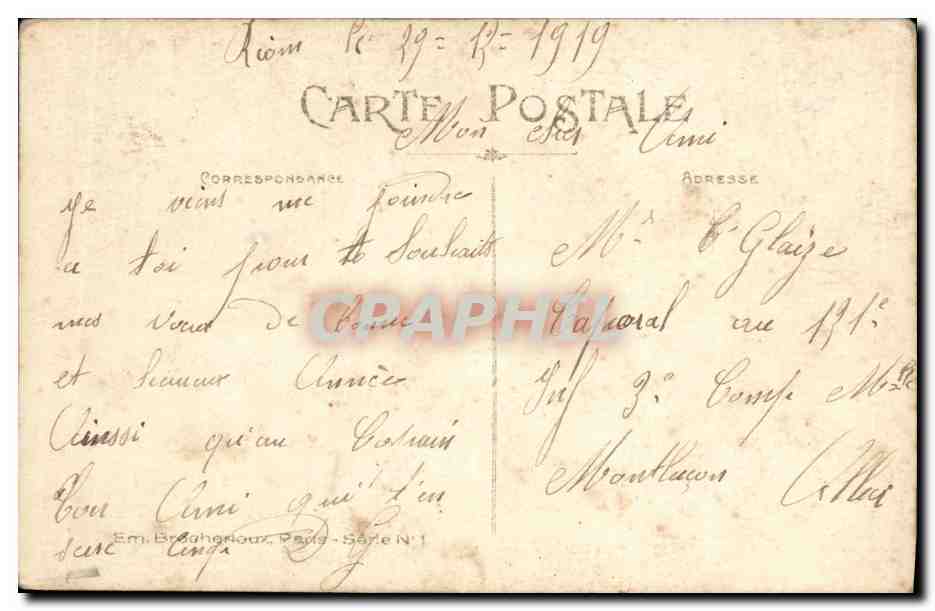 Riom le 29-12-1919
CARTE POSTALE
Mon cher Ami
CORRESPONDANCE
ye viens me joindre
a toi pour te Souhaits
mes vœux de bonne
et heureux Année
Ainssi qu'au Cobain
Ton Ami qui t'en
serre cinq D G
Em. Brocherioux, Paris - Série N° 1
ADRESSE
Mr Glaize
Caporal au 121e
Inf 3e Comp Mse
Montluçon Allier
CPAPHIL